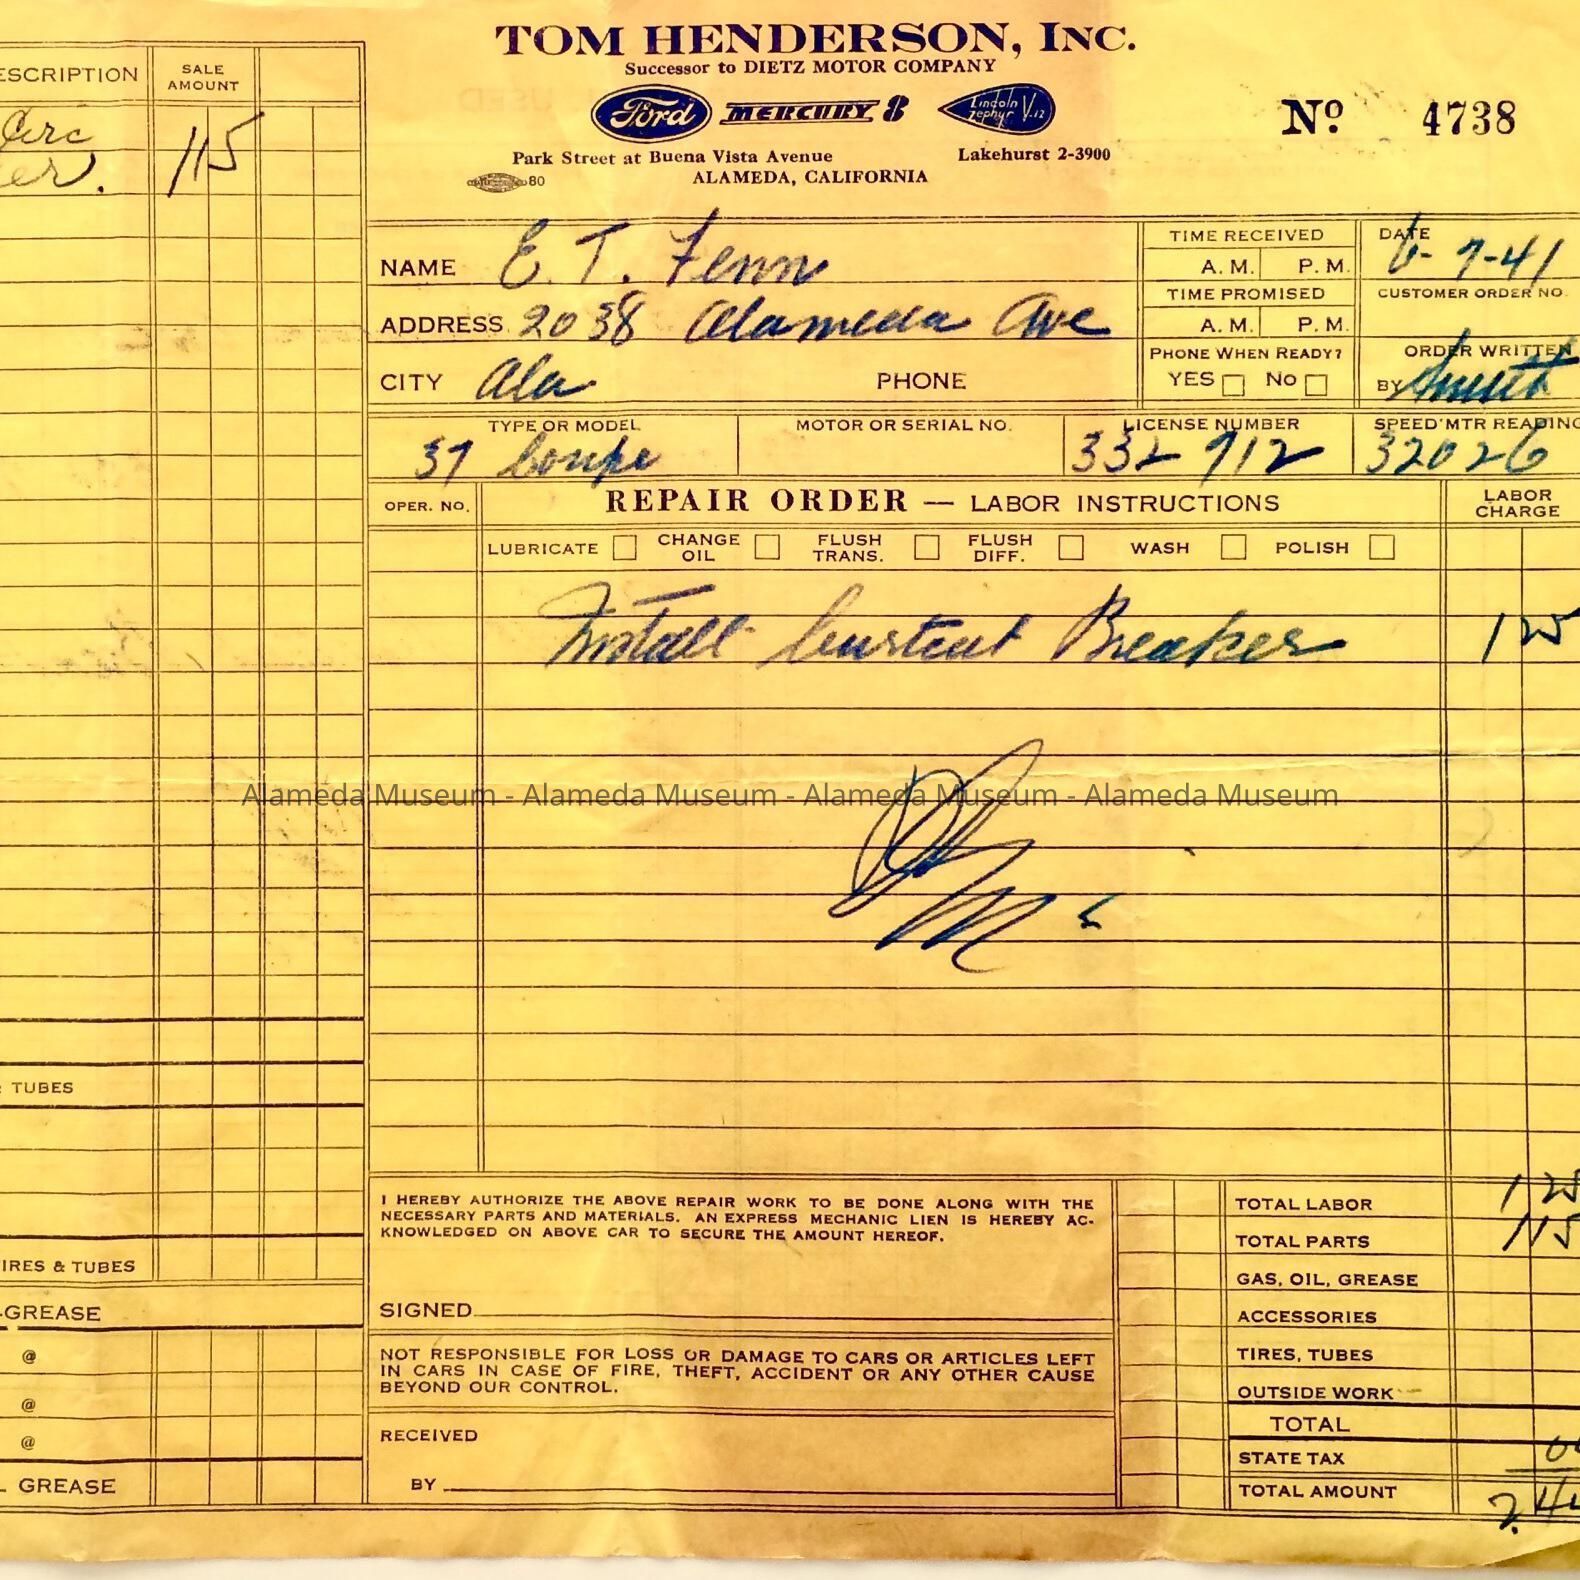 TOM HENDERSON, INC.
Successor to DIETZ MOTOR COMPANY
Ford MERCURY 8 Lincoln Zephyr V-12
Nº 4738
Park Street at Buena Vista Avenue Lakehurst 2-3900
80 ALAMEDA, CALIFORNIA
ESCRIPTION SALE AMOUNT
Circ 1 15
er.
NAME E. T. Fenn
ADDRESS 2038 Alameda Ave
CITY Ala PHONE
TIME RECEIVED
A. M. P. M.
TIME PROMISED
A. M. P. M.
PHONE WHEN READY?
YES NO
DATE 6-7-41
CUSTOMER ORDER NO.
ORDER WRITTEN
BY Smith
TYPE OR MODEL MOTOR OR SERIAL NO. LICENSE NUMBER SPEED'MTR READING
37 Coupe 332 912 32026
OPER. NO. REPAIR ORDER — LABOR INSTRUCTIONS LABOR CHARGE
LUBRICATE CHANGE OIL FLUSH TRANS. FLUSH DIFF. WASH POLISH
Install Breaker 1 25
Alameda Museum - Alameda Museum - Alameda Museum - Alameda Museum
TUBES
IRES & TUBES
-GREASE
@
@
@
GREASE
I HEREBY AUTHORIZE THE ABOVE REPAIR WORK TO BE DONE ALONG WITH THE
NECESSARY PARTS AND MATERIALS. AN EXPRESS MECHANIC LIEN IS HEREBY AC-
KNOWLEDGED ON ABOVE CAR TO SECURE THE AMOUNT HEREOF.
SIGNED
NOT RESPONSIBLE FOR LOSS OR DAMAGE TO CARS OR ARTICLES LEFT
IN CARS IN CASE OF FIRE, THEFT, ACCIDENT OR ANY OTHER CAUSE
BEYOND OUR CONTROL.
RECEIVED
BY
TOTAL LABOR 1 25
TOTAL PARTS 1 15
GAS, OIL, GREASE
ACCESSORIES
TIRES, TUBES
OUTSIDE WORK
TOTAL
STATE TAX 0
TOTAL AMOUNT 2.4